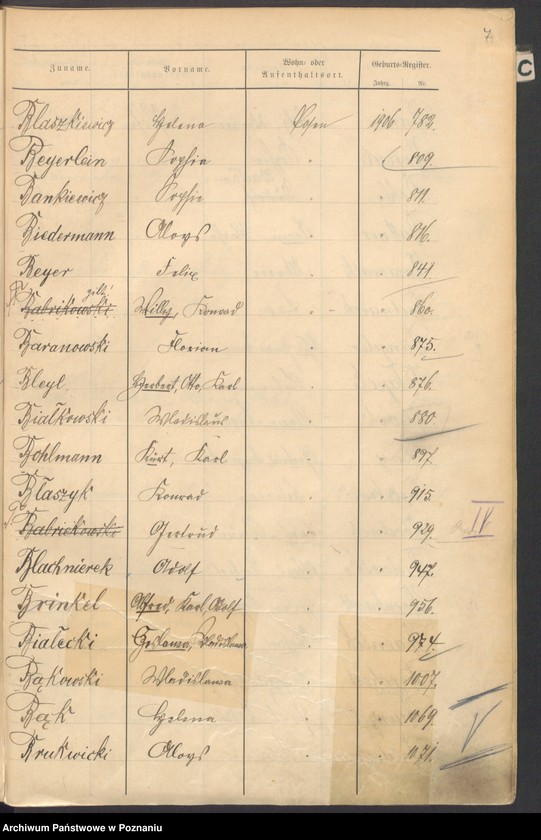 7
C
Zuname. Vorname. Wohn- oder Aufenthaltsort. Geburts-Register.
Jahrg. Nr.
Blaszkiewicz Helena Posen 1906 782.
Beyerlein Sophie " 809.
Bankiewicz Sophie " 811.
Biedermann Aloys " 816.
Beyer Felix " 841
gilt!
Babrikowski Willy, Konrad " 860.
Baranowski Florian " 875.
Bleyl Herbert, Otto, Karl " 876.
Białkowski Wladislaus " 880.
Bohlmann Kurt, Karl " 897.
Błaszyk Konrad " 915.
Babrickowski Gertrud " 929. IV
Blachnierek Adolf " 947.
Brinkel Alfred, Karl, Adolf " 956.
Białecki Wladislawa " 974.
Bąkowski Wladislawa " 1007.
Bąk Helena " 1069. V
Brukwicki Aloys " 1071.
Archiwum Państwowe w Poznaniu